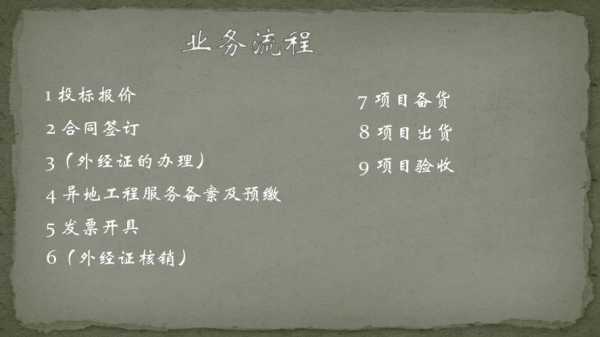 业务流程
1 投标报价
2 合同签订
3（外经证的办理）
4 异地工程服务备案及预缴
5 发票开具
6（外经证核销）
7 项目备货
8 项目出货
9 项目验收